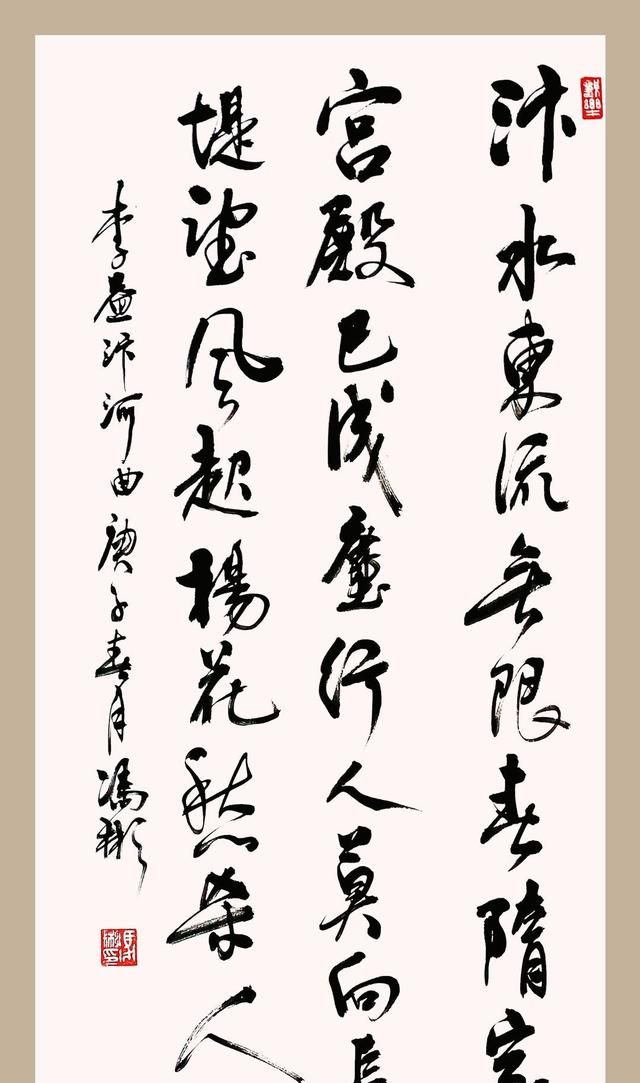 汴水東流無限春隋家
宮殿已成塵行人莫向長
堤望風起楊花愁杀人
李益汴河曲庚子春月馮彬